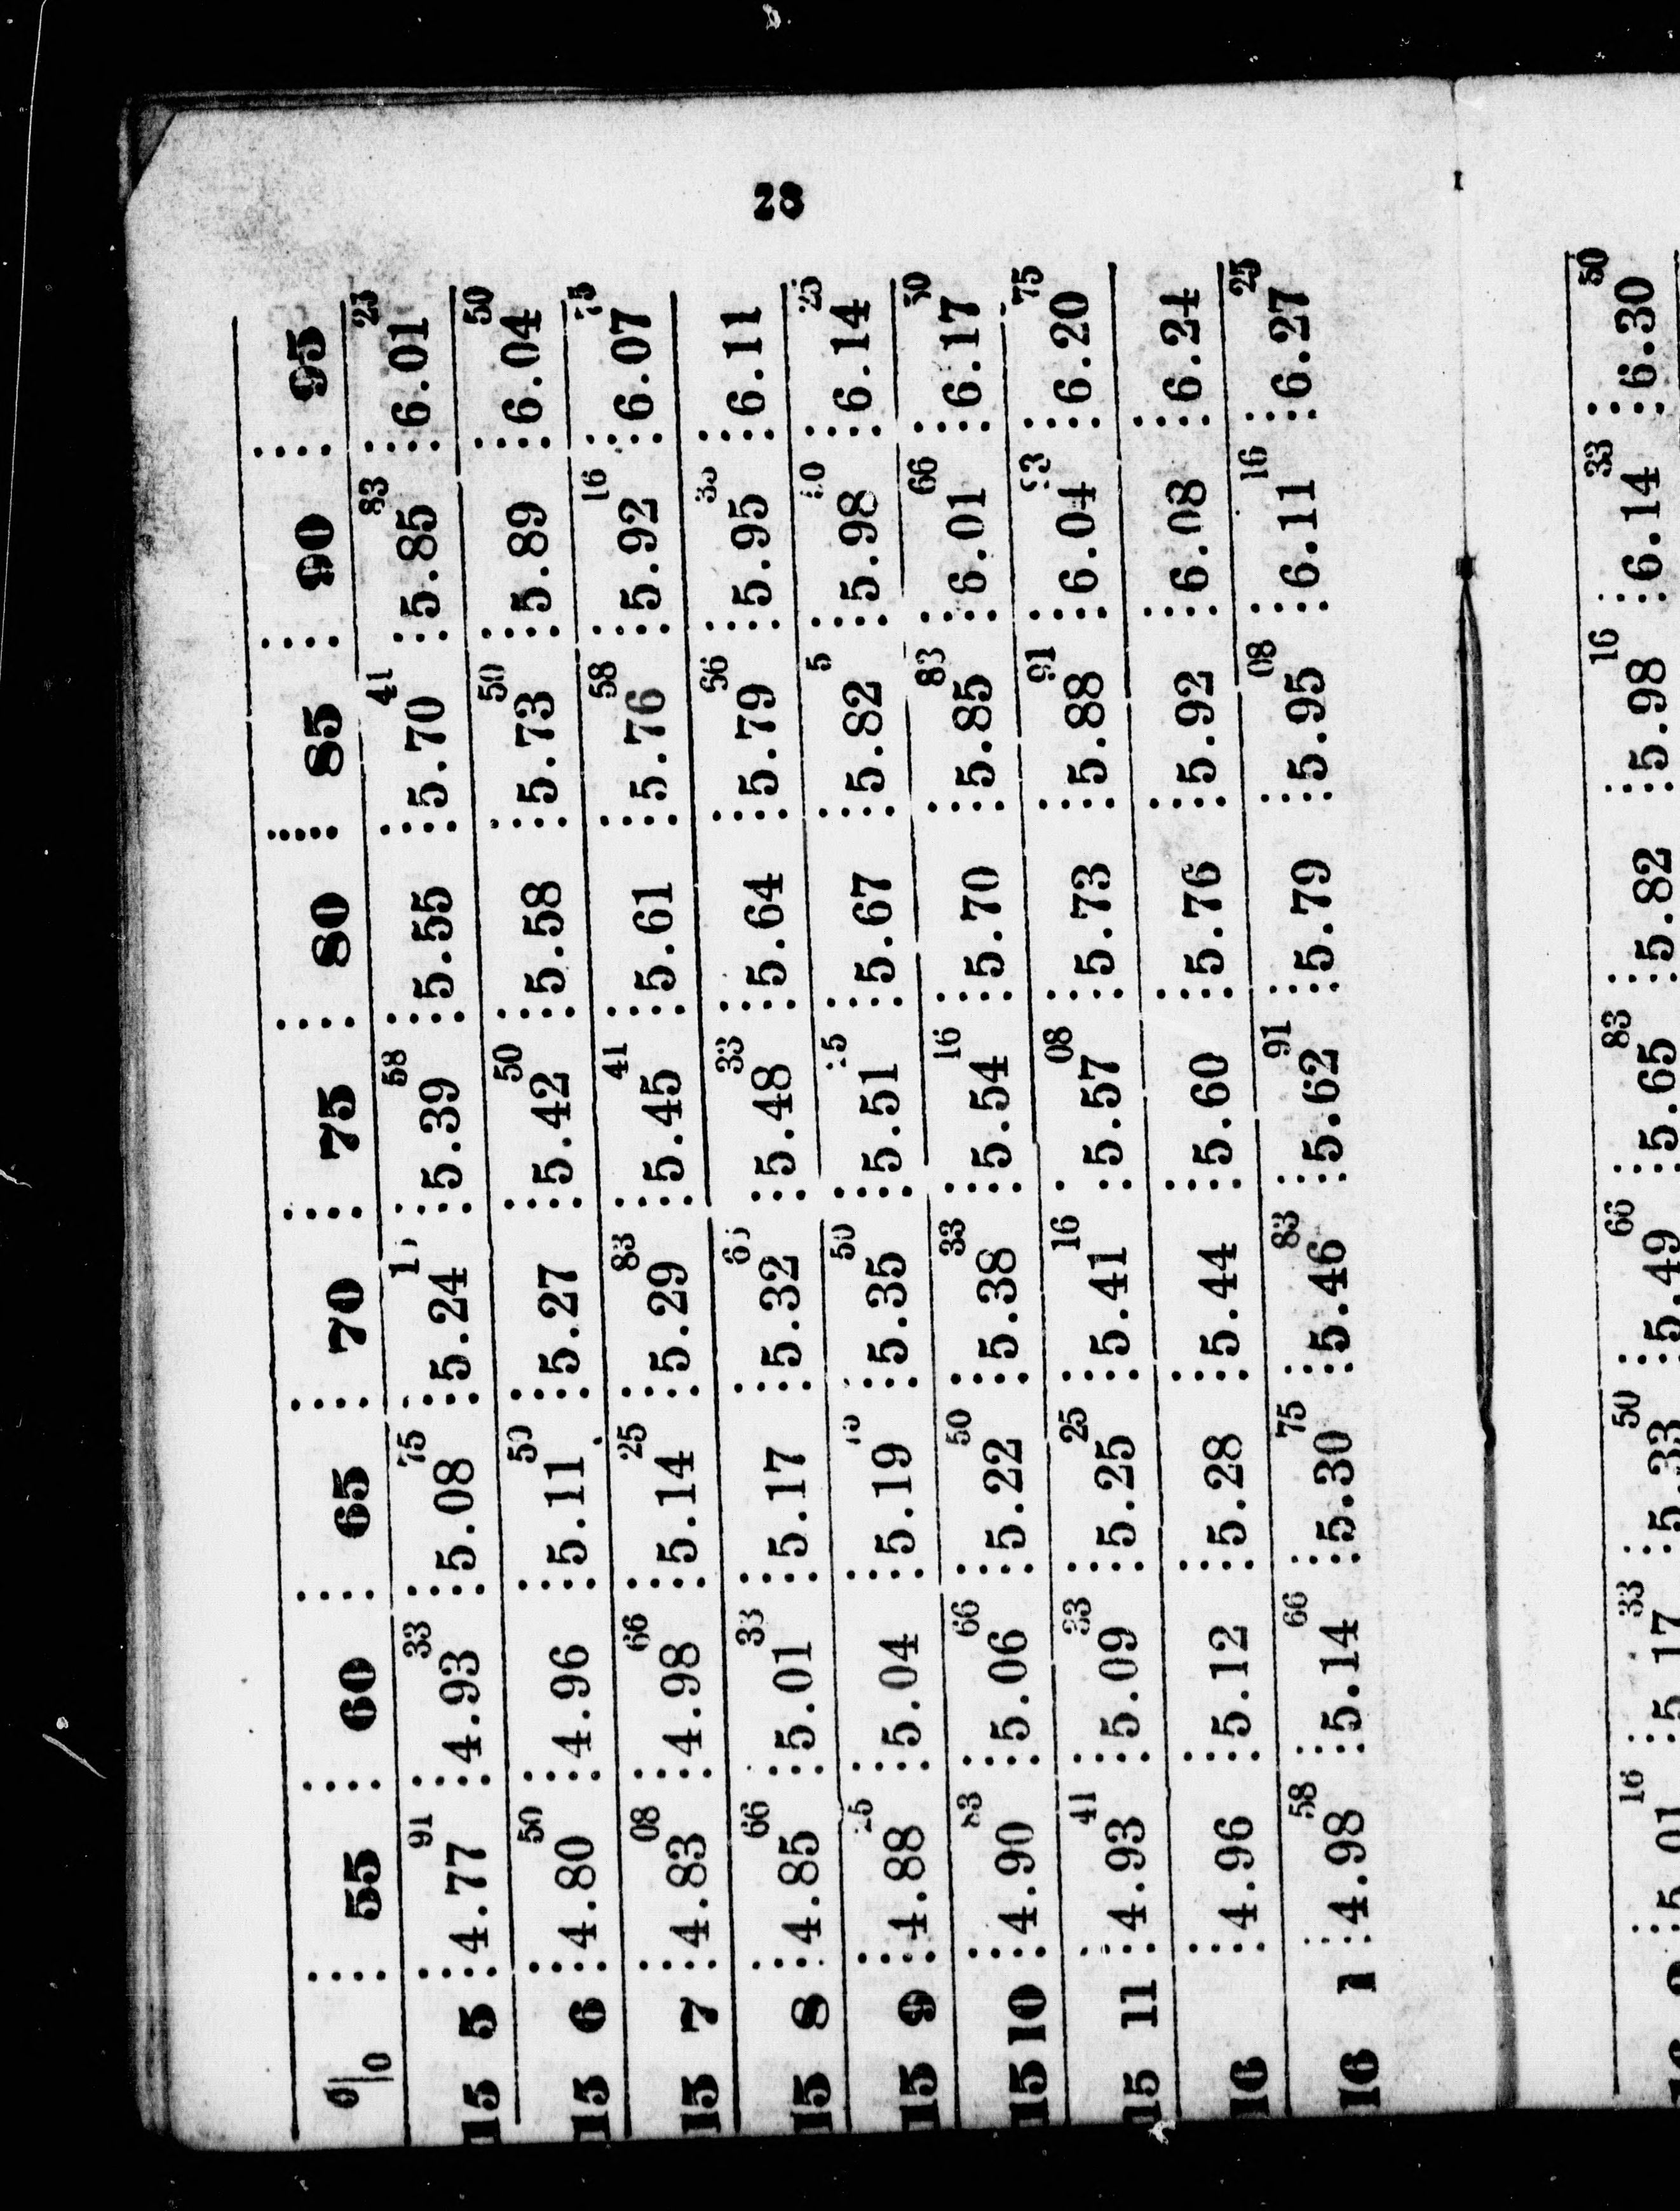 28
0/0 .... 55 .... 60 .... 65 .... 70 .... 75 .... 80 ..... 85 .... 90 .... 95
15 5 .... 4.77 91 .... 4.93 33 .... 5.08 75 .... 5.24 .... 5.39 58 .... 5.55 .... 5.70 41 .... 5.85 83 .... 6.01 25
15 6 .... 4.80 50 .... 4.96 .... 5.11 50 .... 5.27 .... 5.42 50 .... 5.58 .... 5.73 50 .... 5.89 .... 6.04 50
15 7 .... 4.83 08 .... 4.98 66 .... 5.14 25 .... 5.29 83 .... 5.45 41 .... 5.61 .... 5.76 58 .... 5.92 16 .... 6.07 75
15 8 .... 4.85 66 .... 5.01 33 .... 5.17 .... 5.32 .... 5.48 33 .... 5.64 .... 5.79 66 .... 5.95 33 .... 6.11
15 9 .... 4.88 .... 5.04 .... 5.19 .... 5.35 50 .... 5.51 .... 5.67 .... 5.82 5 .... 5.98 .... 6.14 25
15 10 .... 4.90 83 .... 5.06 66 .... 5.22 50 .... 5.38 33 .... 5.54 16 .... 5.70 .... 5.85 83 .... 6.01 66 .... 6.17 50
15 11 .... 4.93 41 .... 5.09 33 .... 5.25 25 .... 5.41 16 .... 5.57 08 .... 5.73 .... 5.88 91 .... 6.04 .... 6.20 75
16 .... 4.96 .... 5.12 .... 5.28 .... 5.44 .... 5.60 .... 5.76 .... 5.92 .... 6.08 .... 6.24
16 1 .... 4.98 58 .... 5.14 66 .... 5.30 75 .... 5.46 83 .... 5.62 91 .... 5.79 .... 5.95 08 .... 6.11 16 .... 6.27 25
5.01 16 .... 5.17 33 .... 5.33 50 .... 5.49 66 .... 5.65 83 .... 5.82 .... 5.98 16 .... 6.14 33 .... 6.30 50